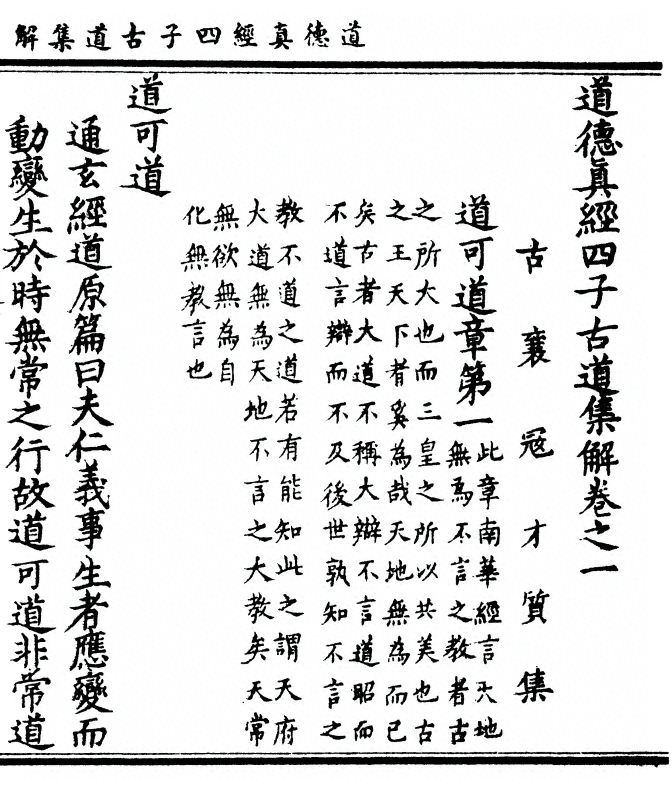 道德真經四子古道集解
道德眞經四子古道集解卷之一
古襄寇才質集
道可道章第一
此章南華經言天地
無爲不言之教者古
之所大也而三皇之所以共美也古
之王天下者奚為哉天地無為而已
矣古者大道不稱大辯不言道昭而
不道言辯而不及後世孰知不言之
教不道之道若有能知此之謂天府
大道無為天地不言之大教矣天常
無欲無為自
化無教言也
道可道
通玄經道原篇曰夫仁義事生者應變而
動變生於時無常之行故道可道非常道